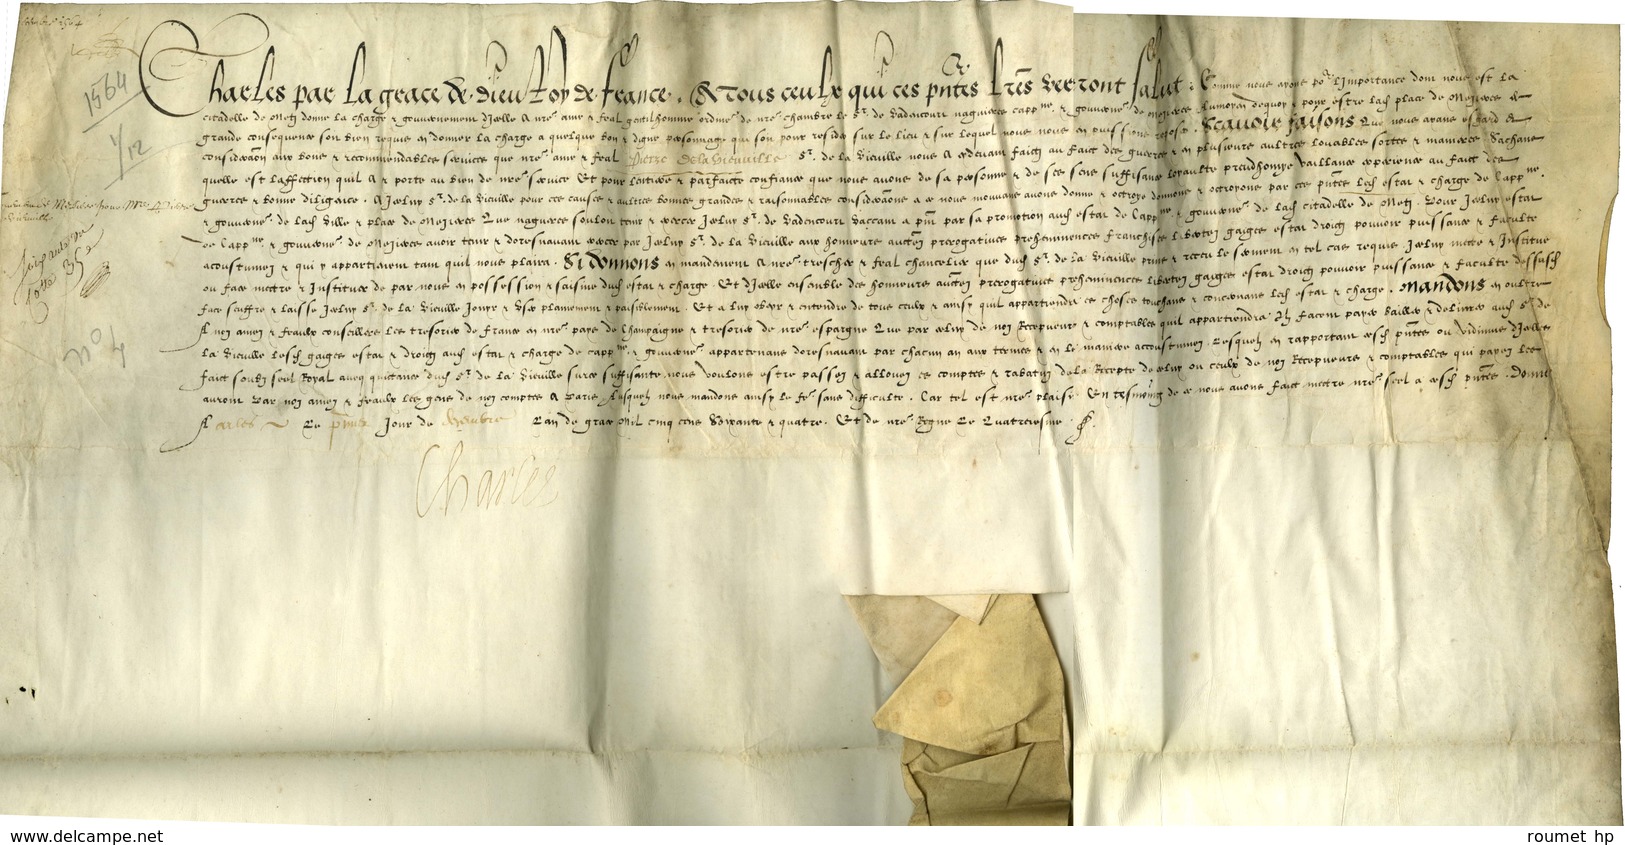 Charles par la grace de dieu Roy de france. A tous ceulx qui ces pntes lres verront salut. Comme nous ayons por limportance dont nous est la
citadelle de Metz donne la charge & gouvernement dicelle A nre ame & feal gentilhomme ordinre de nre chambre le Sr. de Vadancourt nagueres cappne & gouverneur de Mezieres Au moyen dequoy & pour estre lad place de Mezieres de
grande consequence soit bien requis en donner la charge a quelque bon & digne personnage qui soit pour resider sur le lieu & sur lequel nous nous en puissions reposer. Scavoir faisons Que nous ayans esgard &
consideraon aux bons & recommendables services que nre ame & feal Pierre de la Vieuville Sr. de la Vieuville nous A cydevant faictz au faict des guerres & en plusieurs aultres louables sortes & manieres Sachans
quelle est laffection quil A & porte au bien de nre service Et pour lentiere & parfaicte confiance que nous avons de sa personne & de ses sens suffisance loyaulte preudhomye vaillance experience au faict des
guerres & bonne diligence. A Icelluy Sr. de la Vieuville pour ces causes & aultres bonnes grandes & raisonnables consideraons a ce nous mouvans avons donne & octroye donnons & octroyons par ces pntes lad estat & charge de cappne
& gouverneur de lad ville & place de Mezieres Que nagueres souloit tenir & exercer Icelluy Sr. de Vadencourt vaccant A pnt par sa promotion aud estat de cappne & gouverneur de lad citadelle de Metz. Pour Icelluy estat
de cappne & gouverneur de Mezieres avoir tenir & doresnavant exercer par Icelluy Sr. de la Vieuville aux honneurs auctez prerogatives preheminences franchises libertez gaiges estat droictz pouvoir puissance & faculte
acoustumez & qui y appartiennent tant quil nous plaira. Si donnons en mandement A nre trescher & feal chancelier que dud Sr. de la Vieuville prins & receu le serment en tel cas requis Icelluy mette & Institue
ou face mettre & Instituer de par nous en possession & saisine dud estat & charge Et dicelle ensemble des honneurs auctez prerogatives preheminences libertez gaiges estat droictz pouvoir puissance & faculte dessusd
face seuffre & laisse Icelluy Sr. de la Vieuville Jouyr & user plainement & paisiblement. Et a luy obeyr & entendre de tous ceulx & ainsy quil appartiendra es choses touchans & concernans lad estat & charge. Mandons en oultre
A noz amez & feaulx conseillers les tresorier de France en nre pays de Champaigne & tresorier de nre espargne Que par celuy de noz Recepveurs & comptables quil appartiendra Ilz facent payer bailler & delivrer aud Sr de
la Vieuville lesd gaiges estat & droictz aud estat & charge de cappne & gouverneur appartenans doresnavant par chacun an aux termes & en la maniere accoustumez. Lesquelz en rapportant cesd pntes ou vidimus dicelles
faict soubz seel Royal avecq quictance dud Sr de la Vieuville sur ce suffisante nous voulons estre passez & allouez es comptes & rabatuz de la Recepte de celuy ou ceulx de noz Recepveurs & comptables qui payez les
auront par noz amez & feaulx les gens de noz comptes A Paris Ausquelz nous mandons ainsy le fre sans difficulte. Car tel est nre plaisir. En tesmoing de ce nous avons faict mettre nre seel a cesd pntes. Donne
A Arles Le Jour de Lan de grace Mil cinq cens Soixante & quatre. Et de nre Regne Le Quatriesme.
Charles
1564
1/12
no 4
delcampe.net
roumet_hp